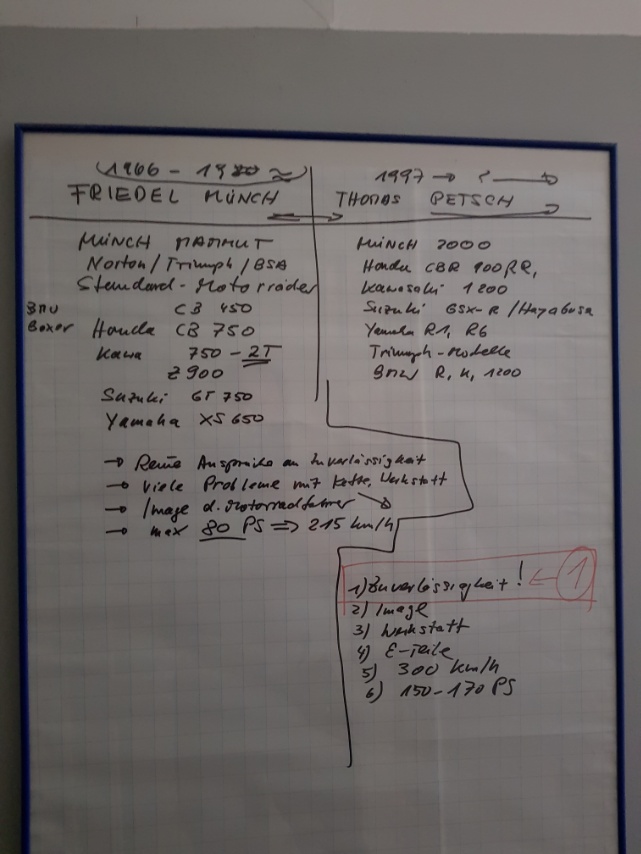 1966 - 1980 ≈
FRIEDEL MÜNCH
MÜNCH MAMMUT
Norton / Triumph / BSA
Standard-Motorräder
CB 450
BMW Boxer
Honda CB 750
Kawa 750 - 2T
Z 900
Suzuki GT 750
Yamaha XS 650
→ Keine Ansprüche an Zuverlässigkeit
→ Viele Probleme mit Kette, Werkstatt
→ Image d. Motorradfahrer
→ max 80 PS ⇒ 215 km/h
1997 → ? →
THOMAS PETSCH
MÜNCH 2000
Honda CBR 900 RR,
Kawasaki 1200
Suzuki GSX-R / Hayabusa
Yamaha R1, R6
Triumph-Modelle
BMW R, K, 1200
1) Zuverlässigkeit! ← 1
2) Image
3) Werkstatt
4) E-Teile
5) 300 km/h
6) 150-170 PS